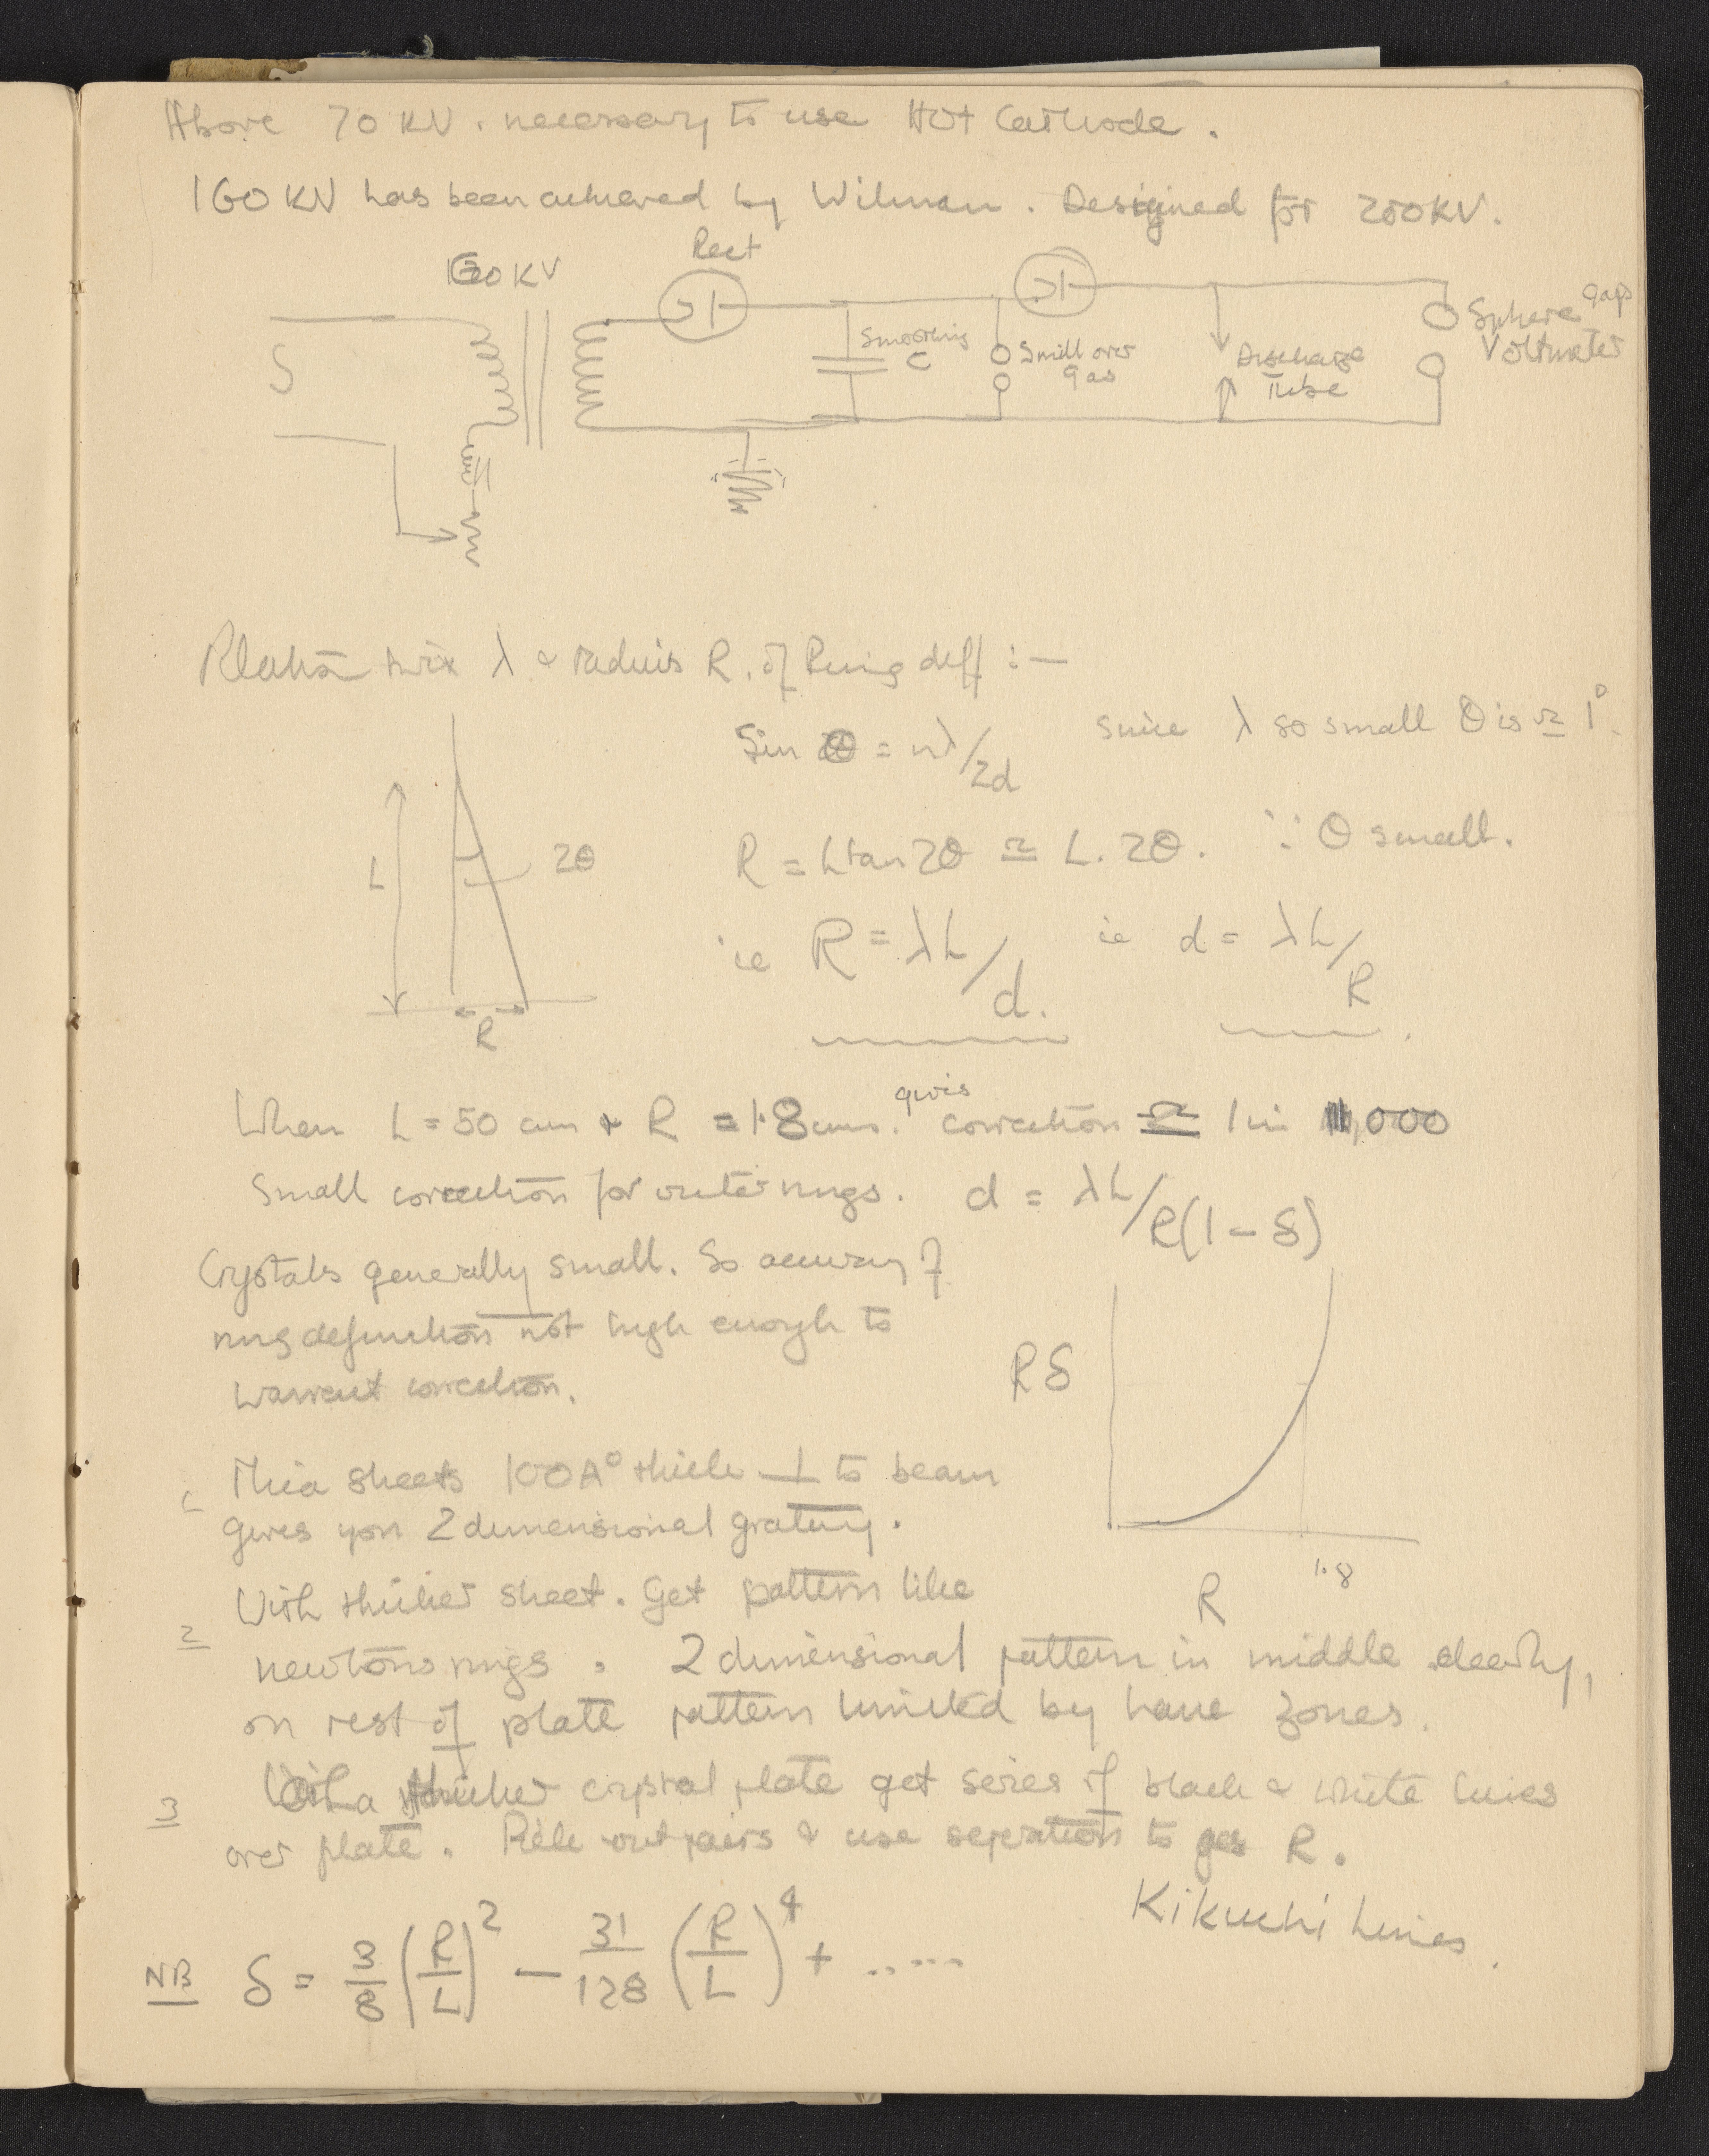 Above 70 KV. necessary to use Hot Cathode.
160 KV has been achieved by Wilman. Designed for 200KV.
Rect
KV
S
Smoothing
C
Spill over
gap
Discharge
Tube
Sphere gaps
Voltmeter
Relation twix λ & radius R. of Ring diff :—
Sin θ = nλ/2d since λ so small θ is ≃ 1°.
L
2θ
R
R = L tan 2θ ≃ L. 2θ. ∵ θ small.
ie R = λL/d. ie d = λL/R.
When L = 50 cm & R = 1.8 cms. gives correction ≃ 1 in 1,000
Small correction for outer rings. d = λL/R(1 – δ)
Crystals generally small. So accuracy of
ring definition not high enough to
warrant correction.
Rδ
R
1.8
1 Mica sheets 100A° thick ⊥ to beam
gives you 2 dimensional grating.
2 With thicker sheet. Get pattern like
newtons rings. 2 dimensional pattern in middle clearly,
on rest of plate pattern limited by laue zones.
3 With a thicker crystal plate get series of black & white lines
over plate. Pick out pairs & use seperation to get R.
Kikuchi Lines.
NB δ = 3/8 (R/L)² – 31/128 (R/L)⁴ + .....